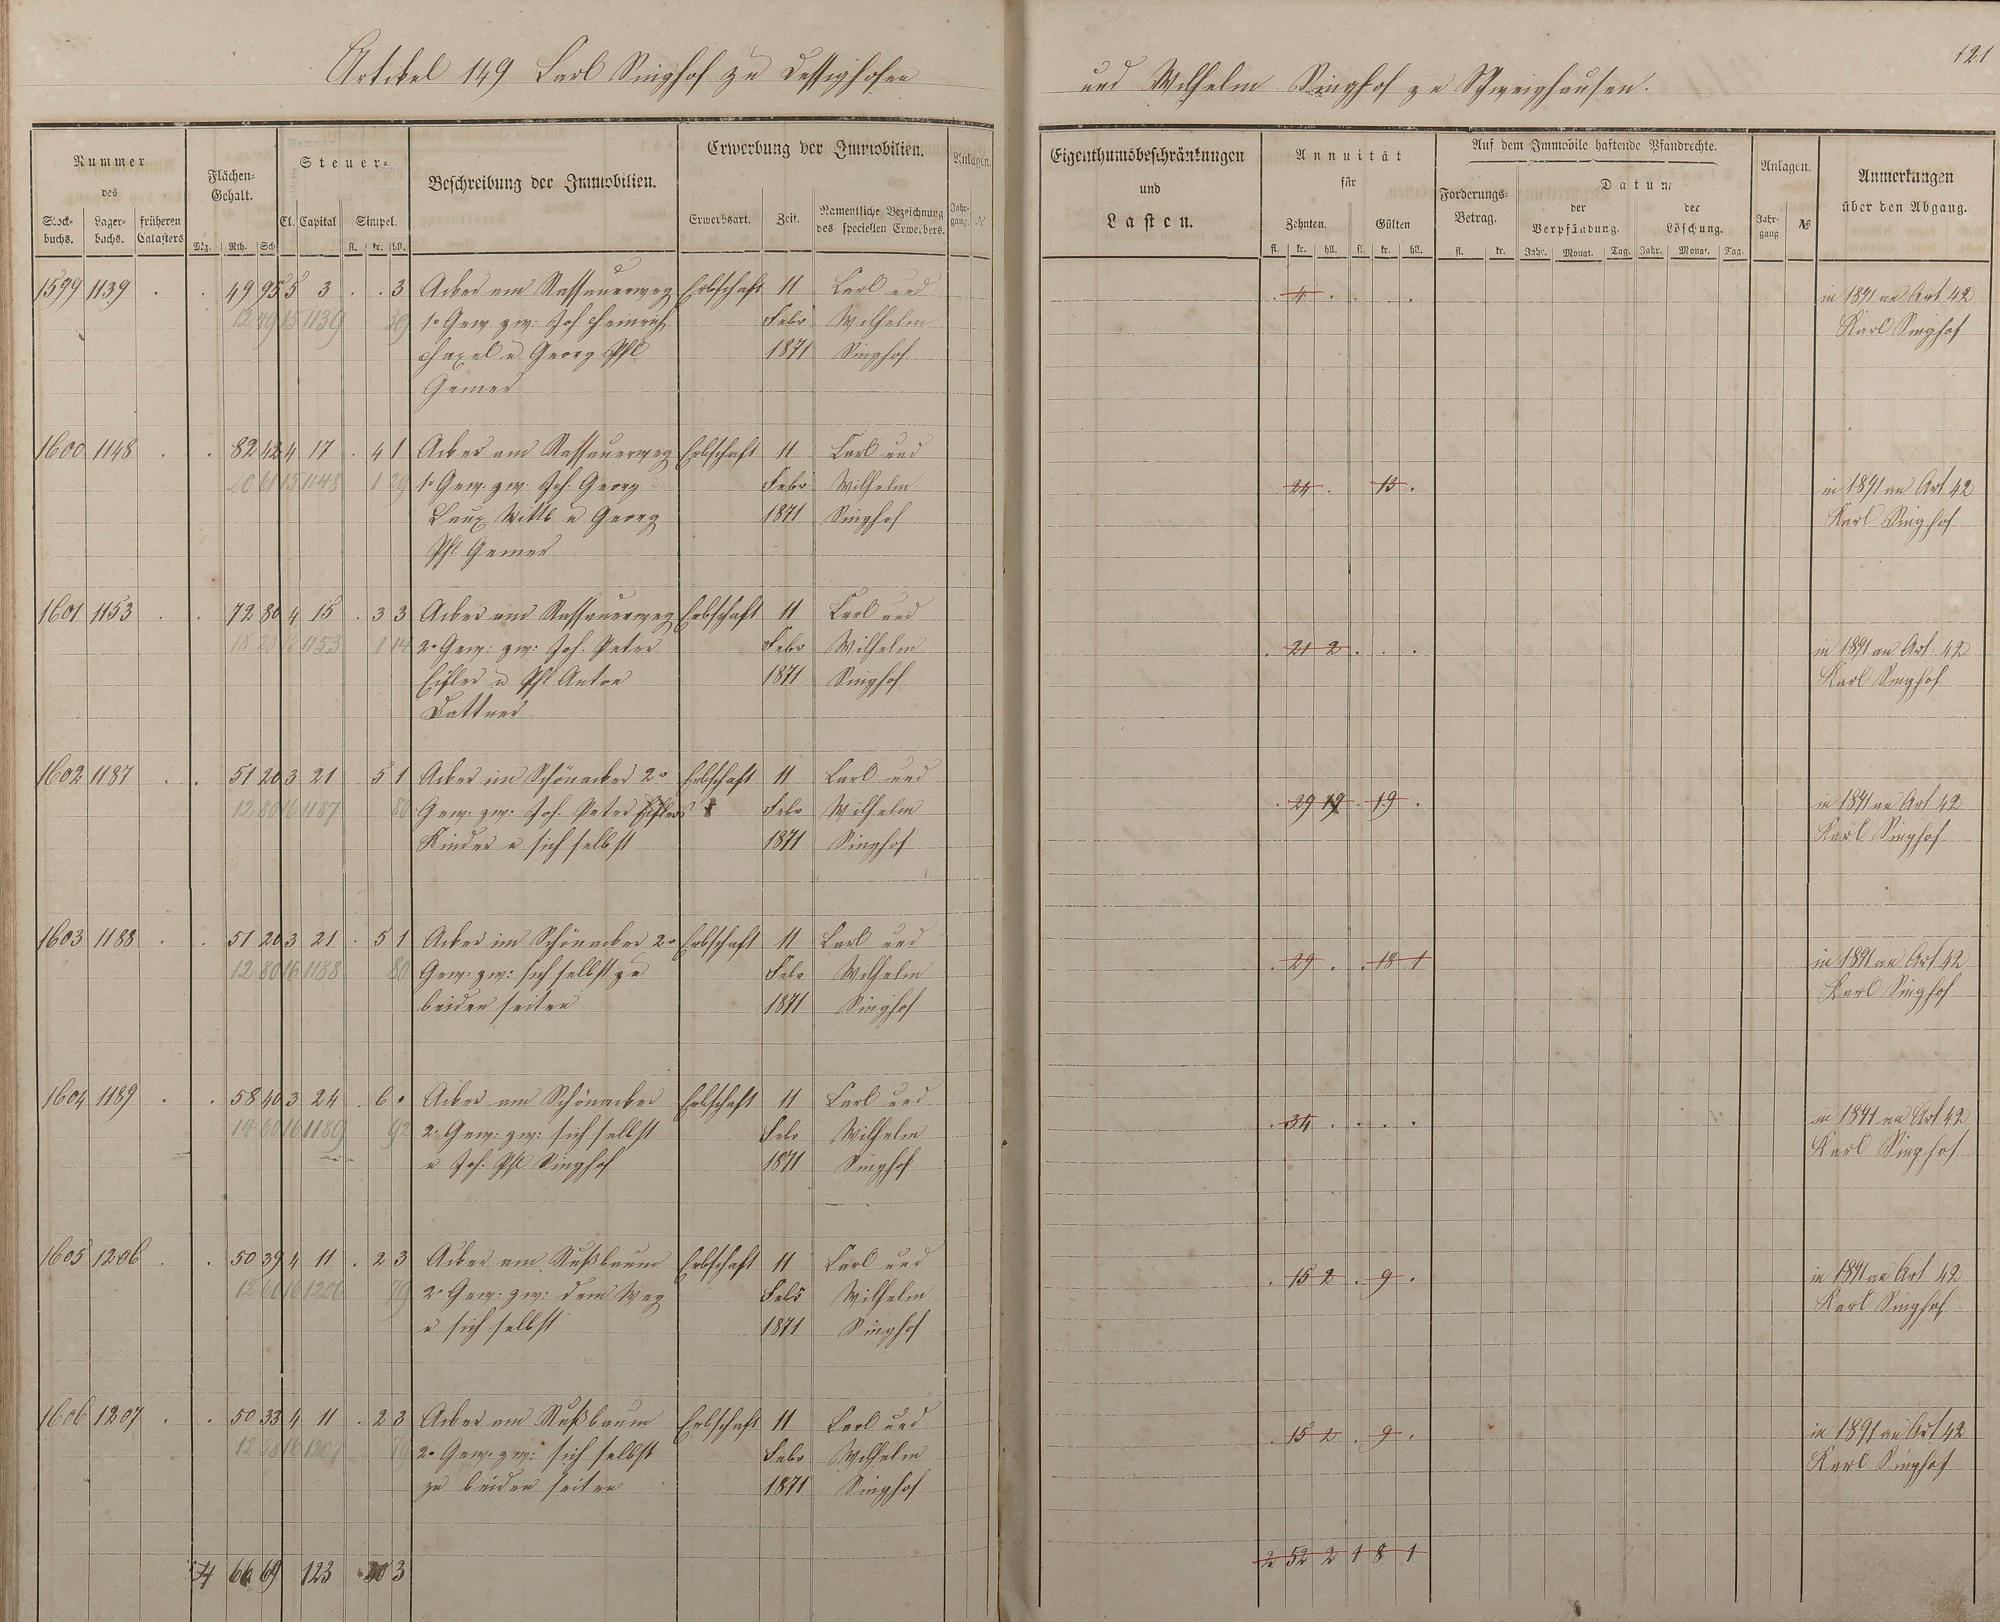 Artikel 149 Carl Singhof zu Dessighofen
und Wilhelm Singhof zu Schweighausen.
121
Nummer
des
Stock-
buchs.
Lager-
buchs.
früheren
Catasters
Flächen-
Gehalt.
Mg. Rth. Sch.
Steuer-
Cl. Capital Simpel.
fl. kr. hll.
Beschreibung der Immobilien.
Erwerbung der Immobilien.
Erwerbsart. Zeit.
Namentliche Bezeichnung
des speciellen Erwerbers.
Anlagen.
Jahr-
gang. №
Eigenthumsbeschränkungen
und
Lasten.
Annuität
für
Zehnten. Gülten
fl. kr. hll. fl. kr. hll.
Auf dem Immobile haftende Pfandrechte.
Forderungs-
Betrag.
fl. kr.
Datum
der
Verpfändung.
Jahr. Monat. Tag.
der
Löschung.
Jahr. Monat. Tag.
Anlagen.
Jahr-
gang №
Anmerkungen
über den Abgang.
1599 1139 . . 49 95 5 3 . . 3 Acker am Nassauerweg Erbschaft 11 Carl und
12 49 15 1139 1r Gew zw: Joh Heinrich Febr Wilhelm
Haxel u Georg Phl 1871 Singhof
Gemer
. 4 . . .
in 1891 an Art 42
Karl Singhof
1600 1148 . . 82 42 4 17 . 4 1 Acker am Nassauerweg Erbschaft 11 Carl und
20 61 15 1148 1 29 1r Gew. zw: Joh. Georg Febr Wilhelm
Laux Wittb u Georg 1871 Singhof
Phl Gemer
24 . 13 .
in 1891 an Art 42
Karl Singhof
1601 1153 . . 72 80 4 15 . 3 3 Acker am Nassauerweg Erbschaft 11 Carl und
18 20 16 1153 1 14 2r Gew: zw: Joh. Peter Febr Wilhelm
Eisler u Phl Anton 1871 Singhof
Dattner
. 21 2 . . .
in 1891 an Art: 42
Karl Singhof
1602 1187 . . 51 20 3 21 5 1 Acker im Schönacker 2r Erbschaft 11 Carl und
12 80 16 1187 80 Gew. zw: Joh. Peter Eislers Febr Wilhelm
Kinder u sich selbst 1871 Singhof
. 29 . 19 .
in 1891 an Art 42
Karl Singhof
1603 1188 . . 51 20 3 21 . 5 1 Acker im Schönacker 2r Erbschaft 11 Carl und
12 80 16 1188 80 Gew: zw: sich selbst zu Febr Wilhelm
beiden seiten 1871 Singhof
. 29 . . 18 1
in 1891 an Art 42
Karl Singhof
1604 1189 . . 58 40 3 24 . 6 . Acker am Schönacker Erbschaft 11 Carl und
14 60 16 1189 92 2r Gew: zw: sich selbst Febr Wilhelm
u Joh. Phl Singhof 1871 Singhof
. 34 . . . .
in 1891 an Art 42
Karl Singhof
1605 1206 . . 50 39 4 11 . 2 3 Acker am Nußbaum Erbschaft 11 Carl und
12 60 16 1206 79 2r Gew: zw: dem Weg Febr Wilhelm
u sich selbst 1871 Singhof
. 15 2 . 9 .
in 1891 an Art 42
Karl Singhof
1606 1207 . . 50 33 4 11 . 2 3 Acker am Nußbaum Erbschaft 11 Carl und
12 58 16 1207 79 2r Gew. zw: sich selbst Febr Wilhelm
zu beiden seiten 1871 Singhof
. 15 2 . 9 .
in 1891 an Art 42
Karl Singhof
4 66 69 123 30 3
2 52 2 1 8 1